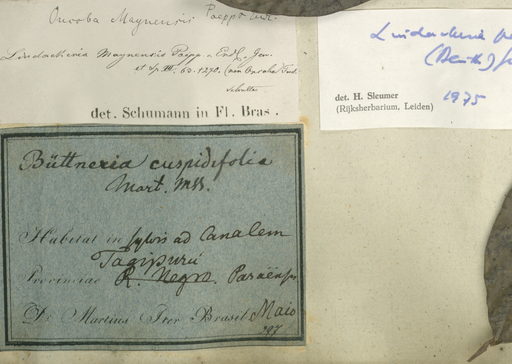 Oncoba Maynensis Poepp
Lindackeria Maynensis Poepp. & Endl. Gen.
et Sp. III. 63. t. 270. (non Oncoba
det. Schumann in Fl. Bras.
Lindackeria
(Benth)
det. H. Sleumer
(Rijksherbarium, Leiden)
1975
Büttneria cuspidifolia
Mart. mss.
Habitat in sylvis ad Canalem
Tagipurú
Provinciae R. Negro. Paraënsis
Dr. Martius Iter Brasil. Maio